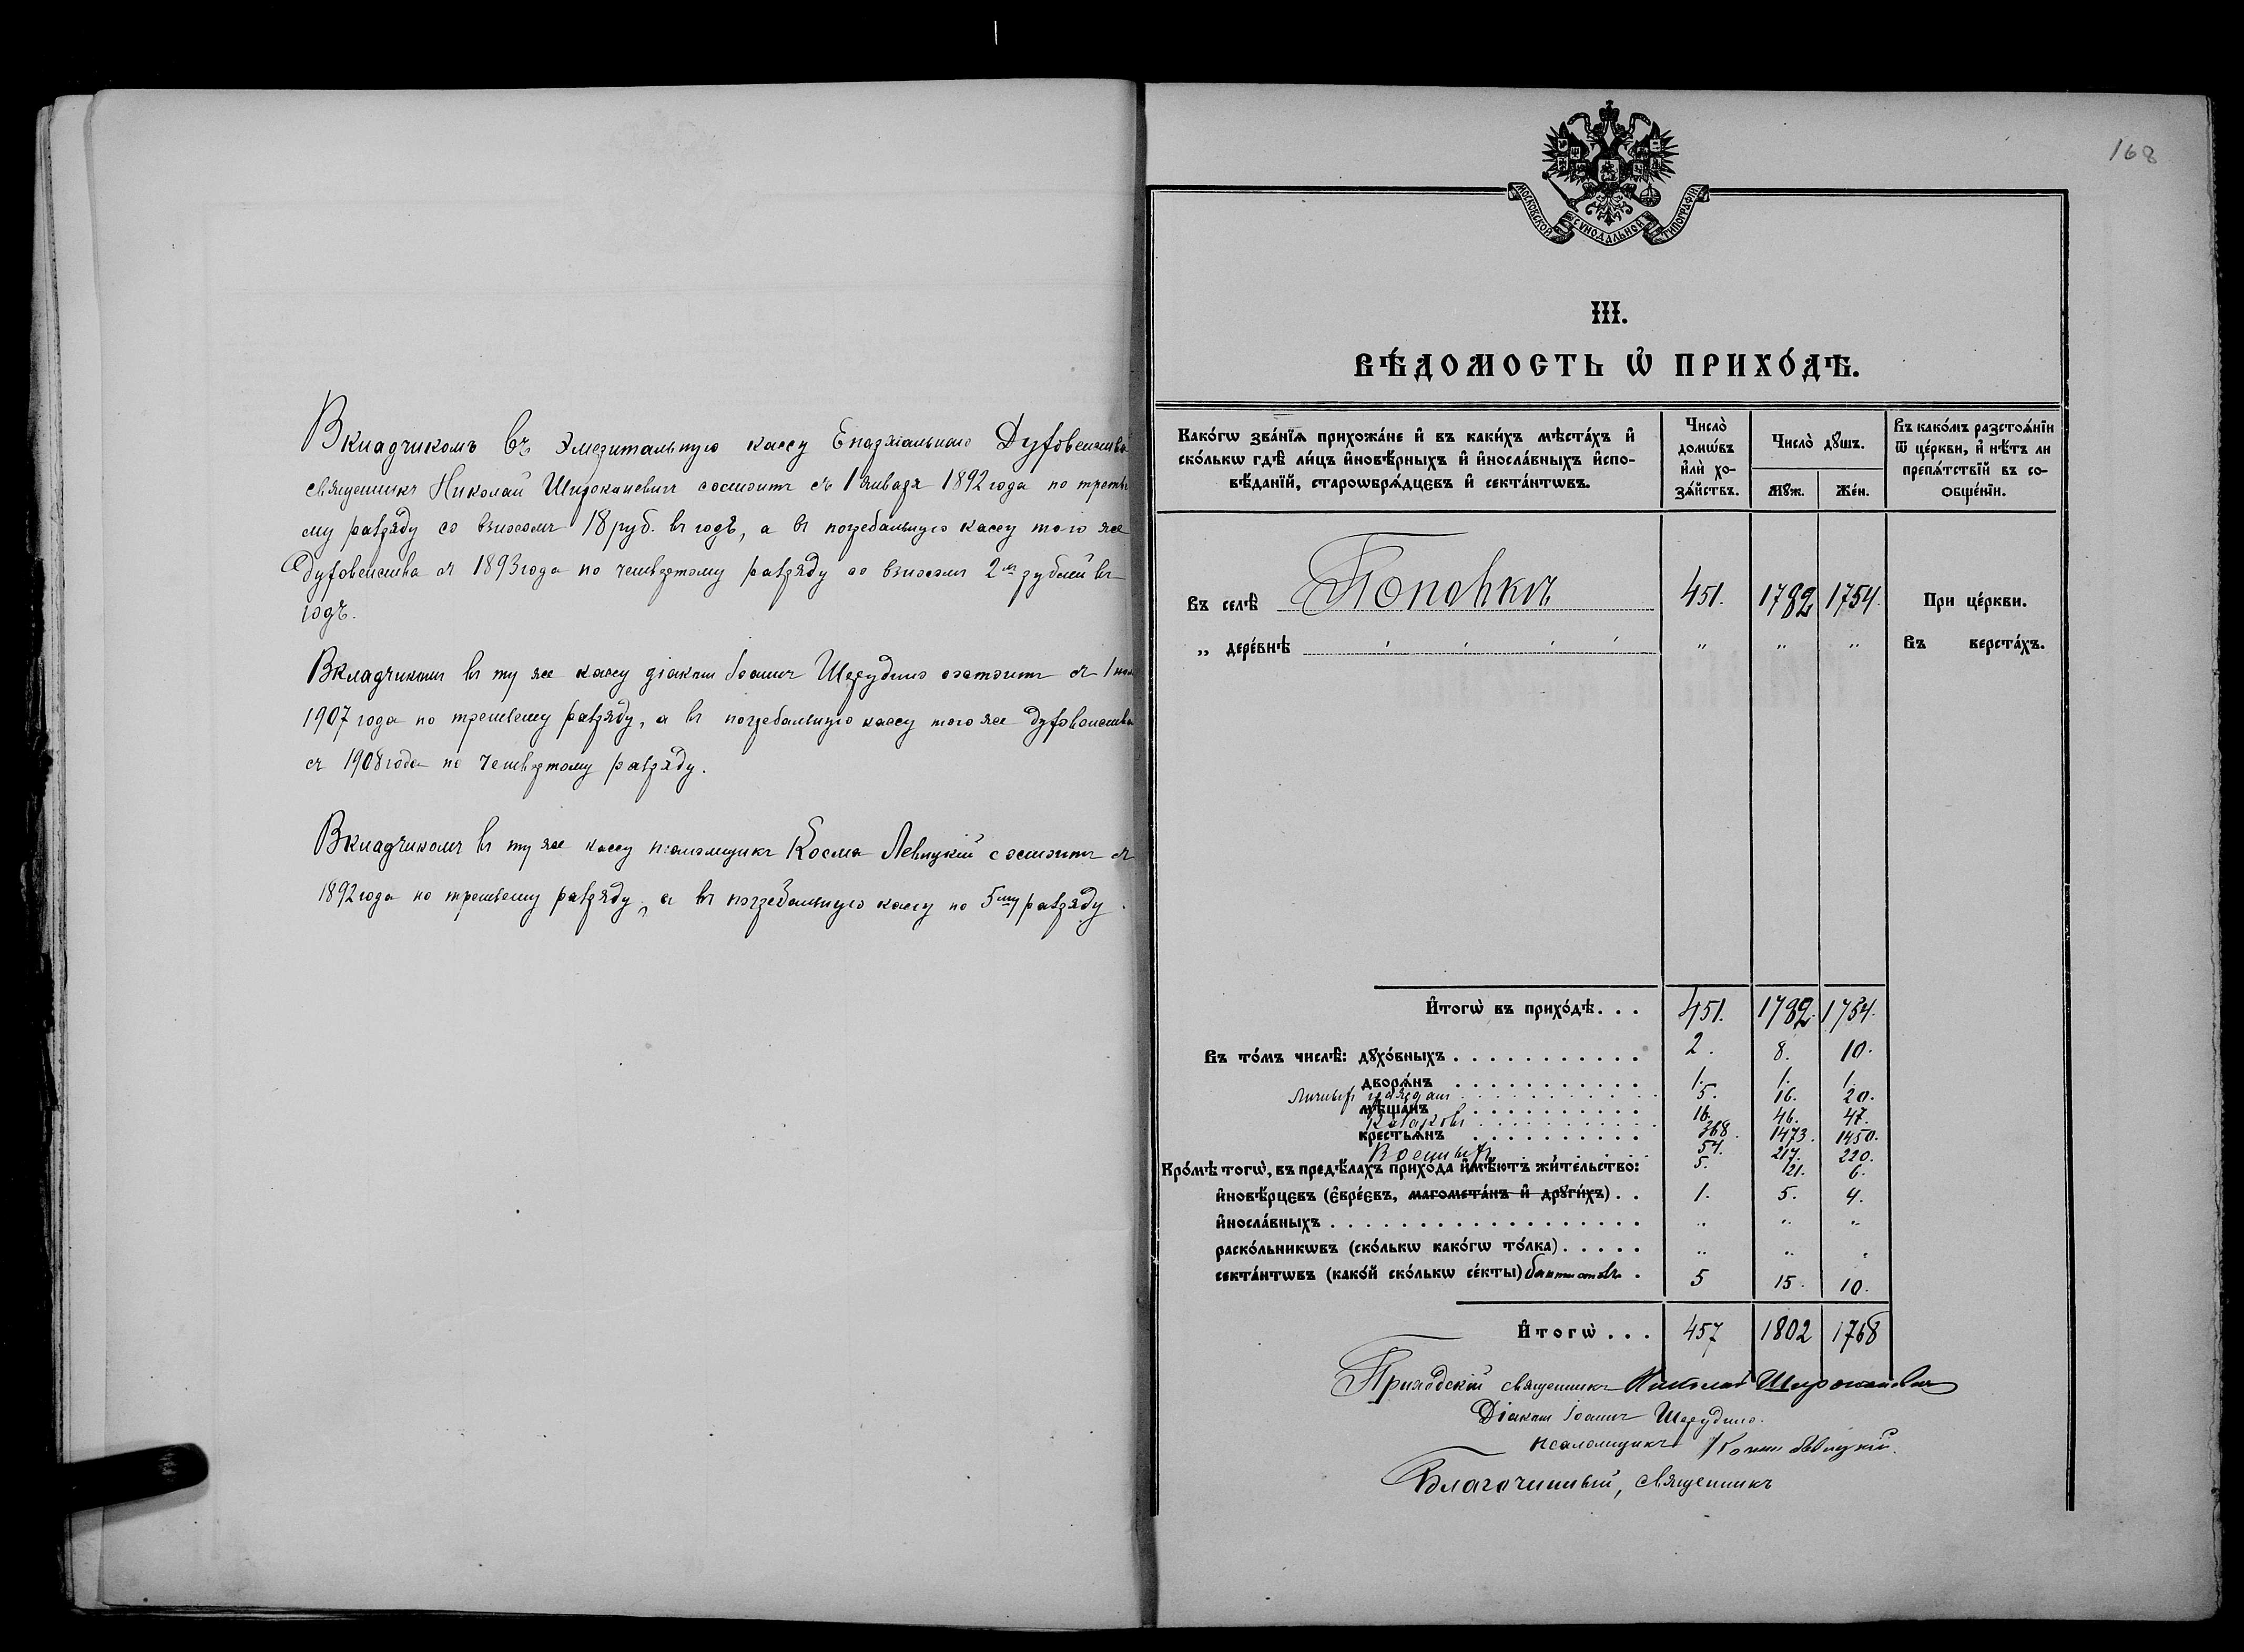 Вкладчикомъ въ Эмеритальную кассу Епархіальнаго Духовенства
священникъ Николай Широкановичъ состоитъ съ 1 января 1892 года по треть-
му разряду со взносомъ 18 руб. въ годъ, а въ погребальную кассу того же
духовенства съ 1893 года по четвертому разряду со взносомъ 2 рублей въ
годъ.
Вкладчикомъ въ ту же кассу діаконъ Іоаннъ Шерудило состоитъ съ 1
1907 года по третьему разряду, а въ погребальную кассу того же духовенства
съ 1908 года по четвертому разряду.
Вкладчикомъ въ ту же кассу псаломщикъ Косма Левицкій состоитъ съ
1892 года по третьему разряду, а въ погребальную кассу по 5му разряду.
168
МОСКОВСКОЙ СѴНОДАЛЬНОЙ ТИПОГРАФІИ
III.
ВѢ́ДОМОСТЬ Ѡ҆ ПРИХО́ДѢ.
Како́гѡ зва́нїѧ прихожа́не и҆ въ каки́хъ мѣста́хъ и҆
ско́лькѡ гдѣ̀ ли́цъ и҆новѣ́рныхъ и҆ и҆носла́вныхъ и҆спо-
вѣ́данїй, староѡбрѧ́дцевъ и҆ секта́нтѡвъ.
Число̀
домѡ́въ
и҆лѝ хо-
зѧ́йствъ.
Число̀ дꙋ́шъ.
Мꙋ́ж.
Же́н.
Въ како́мъ разстоѧ́нїи
ѿ це́ркви, и҆ нѣ́тъ ли
препѧ́тствїй въ со-
ѻбще́нїи.
Въ селѣ̀ Поповкѣ 451. 1782 1754. При це́ркви.
„ дере́внѣ „ „ „ Въ верста́хъ.
И҆того̀ въ прихо́дѣ. . . 451. 1782. 1754.
Въ то́мъ числѣ̀: дꙋхо́вныхъ . . . 2. 8. 10.
дворѧ́нъ . . . 1. 1. 1.
Личныхъ гражданъ . . . 5. 16. 20.
мѣща́нъ . . . 16. 46. 47.
Казаковъ
крестьѧ́нъ . . . 368. 1473. 1450.
Военныхъ 54. 217. 220.
Кро́мѣ тогѡ̀, въ предѣ́лахъ прихо́да и҆мѣ́ютъ жи́тельство: 5. 21. 6.
и҆новѣ́рцевъ (є҆вре́евъ, магомета́нъ и҆ дрꙋги́хъ) . . 1. 5. 4.
и҆носла́вныхъ . . . „ „ „
раско́льникѡвъ (ско́лькѡ како́гѡ то́лка) . . . „ „ „
секта́нтѡвъ (како́й ско́лькѡ се́кты) баптистовъ . 5 15. 10.
И҆того̀ . . . 457 1802 1768
Приходскій священникъ Николай Широкановичъ
Діаконъ Іоаннъ Шерудило.
псаломщикъ Косма Левицкій.
Благочинный, священникъ